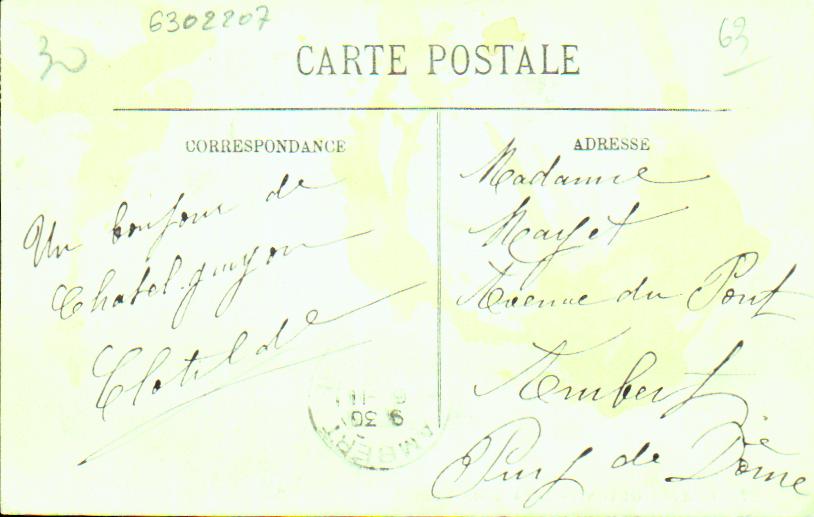 6302207
30
63
CARTE POSTALE
CORRESPONDANCE
Un bonjour de
Chatel guyon
Clotilde
ADRESSE
Madame
Mayet
Avenue du Pont
Ambert
Puy de Dôme
AMBERT
9 30